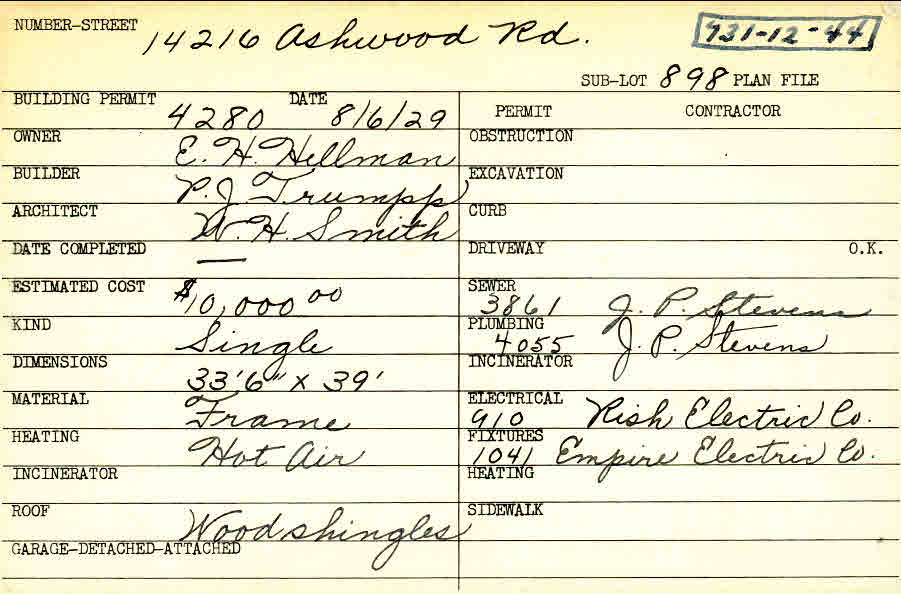 NUMBER-STREET 14216 Ashwood Rd. 731-12-44
SUB-LOT 898 PLAN FILE
BUILDING PERMIT 4280 DATE 8/6/29
OWNER E. H. Hellman
BUILDER P. J. Trumpp
ARCHITECT W. H. Smith
DATE COMPLETED —
ESTIMATED COST $10,000 00
KIND Single
DIMENSIONS 33'6" x 39'
MATERIAL Frame
HEATING Hot Air
INCINERATOR
ROOF Wood shingles
GARAGE-DETACHED-ATTACHED
PERMIT CONTRACTOR
OBSTRUCTION
EXCAVATION
CURB
DRIVEWAY O.K.
SEWER 3861 J. P. Stevens
PLUMBING 4055 J. P. Stevens
INCINERATOR
ELECTRICAL 910 Rish Electric Co.
FIXTURES 1041 Empire Electric Co.
HEATING
SIDEWALK